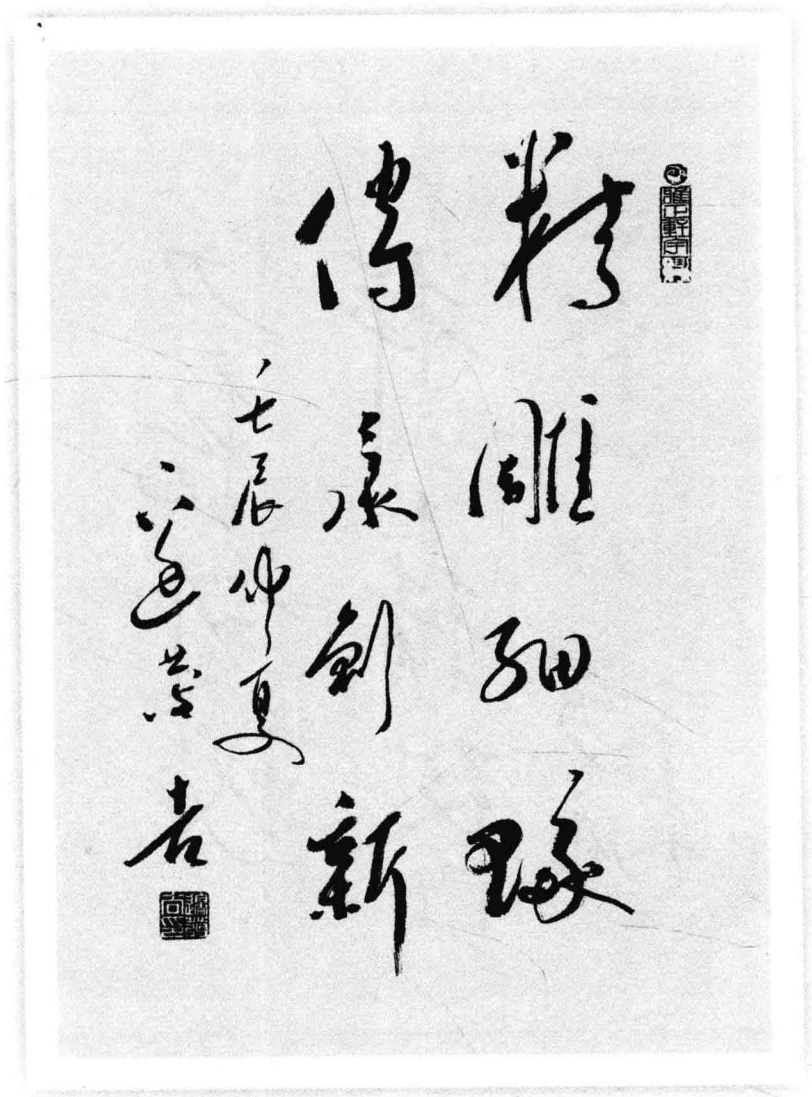 精雕细琢
傳承創新
壬辰仲夏